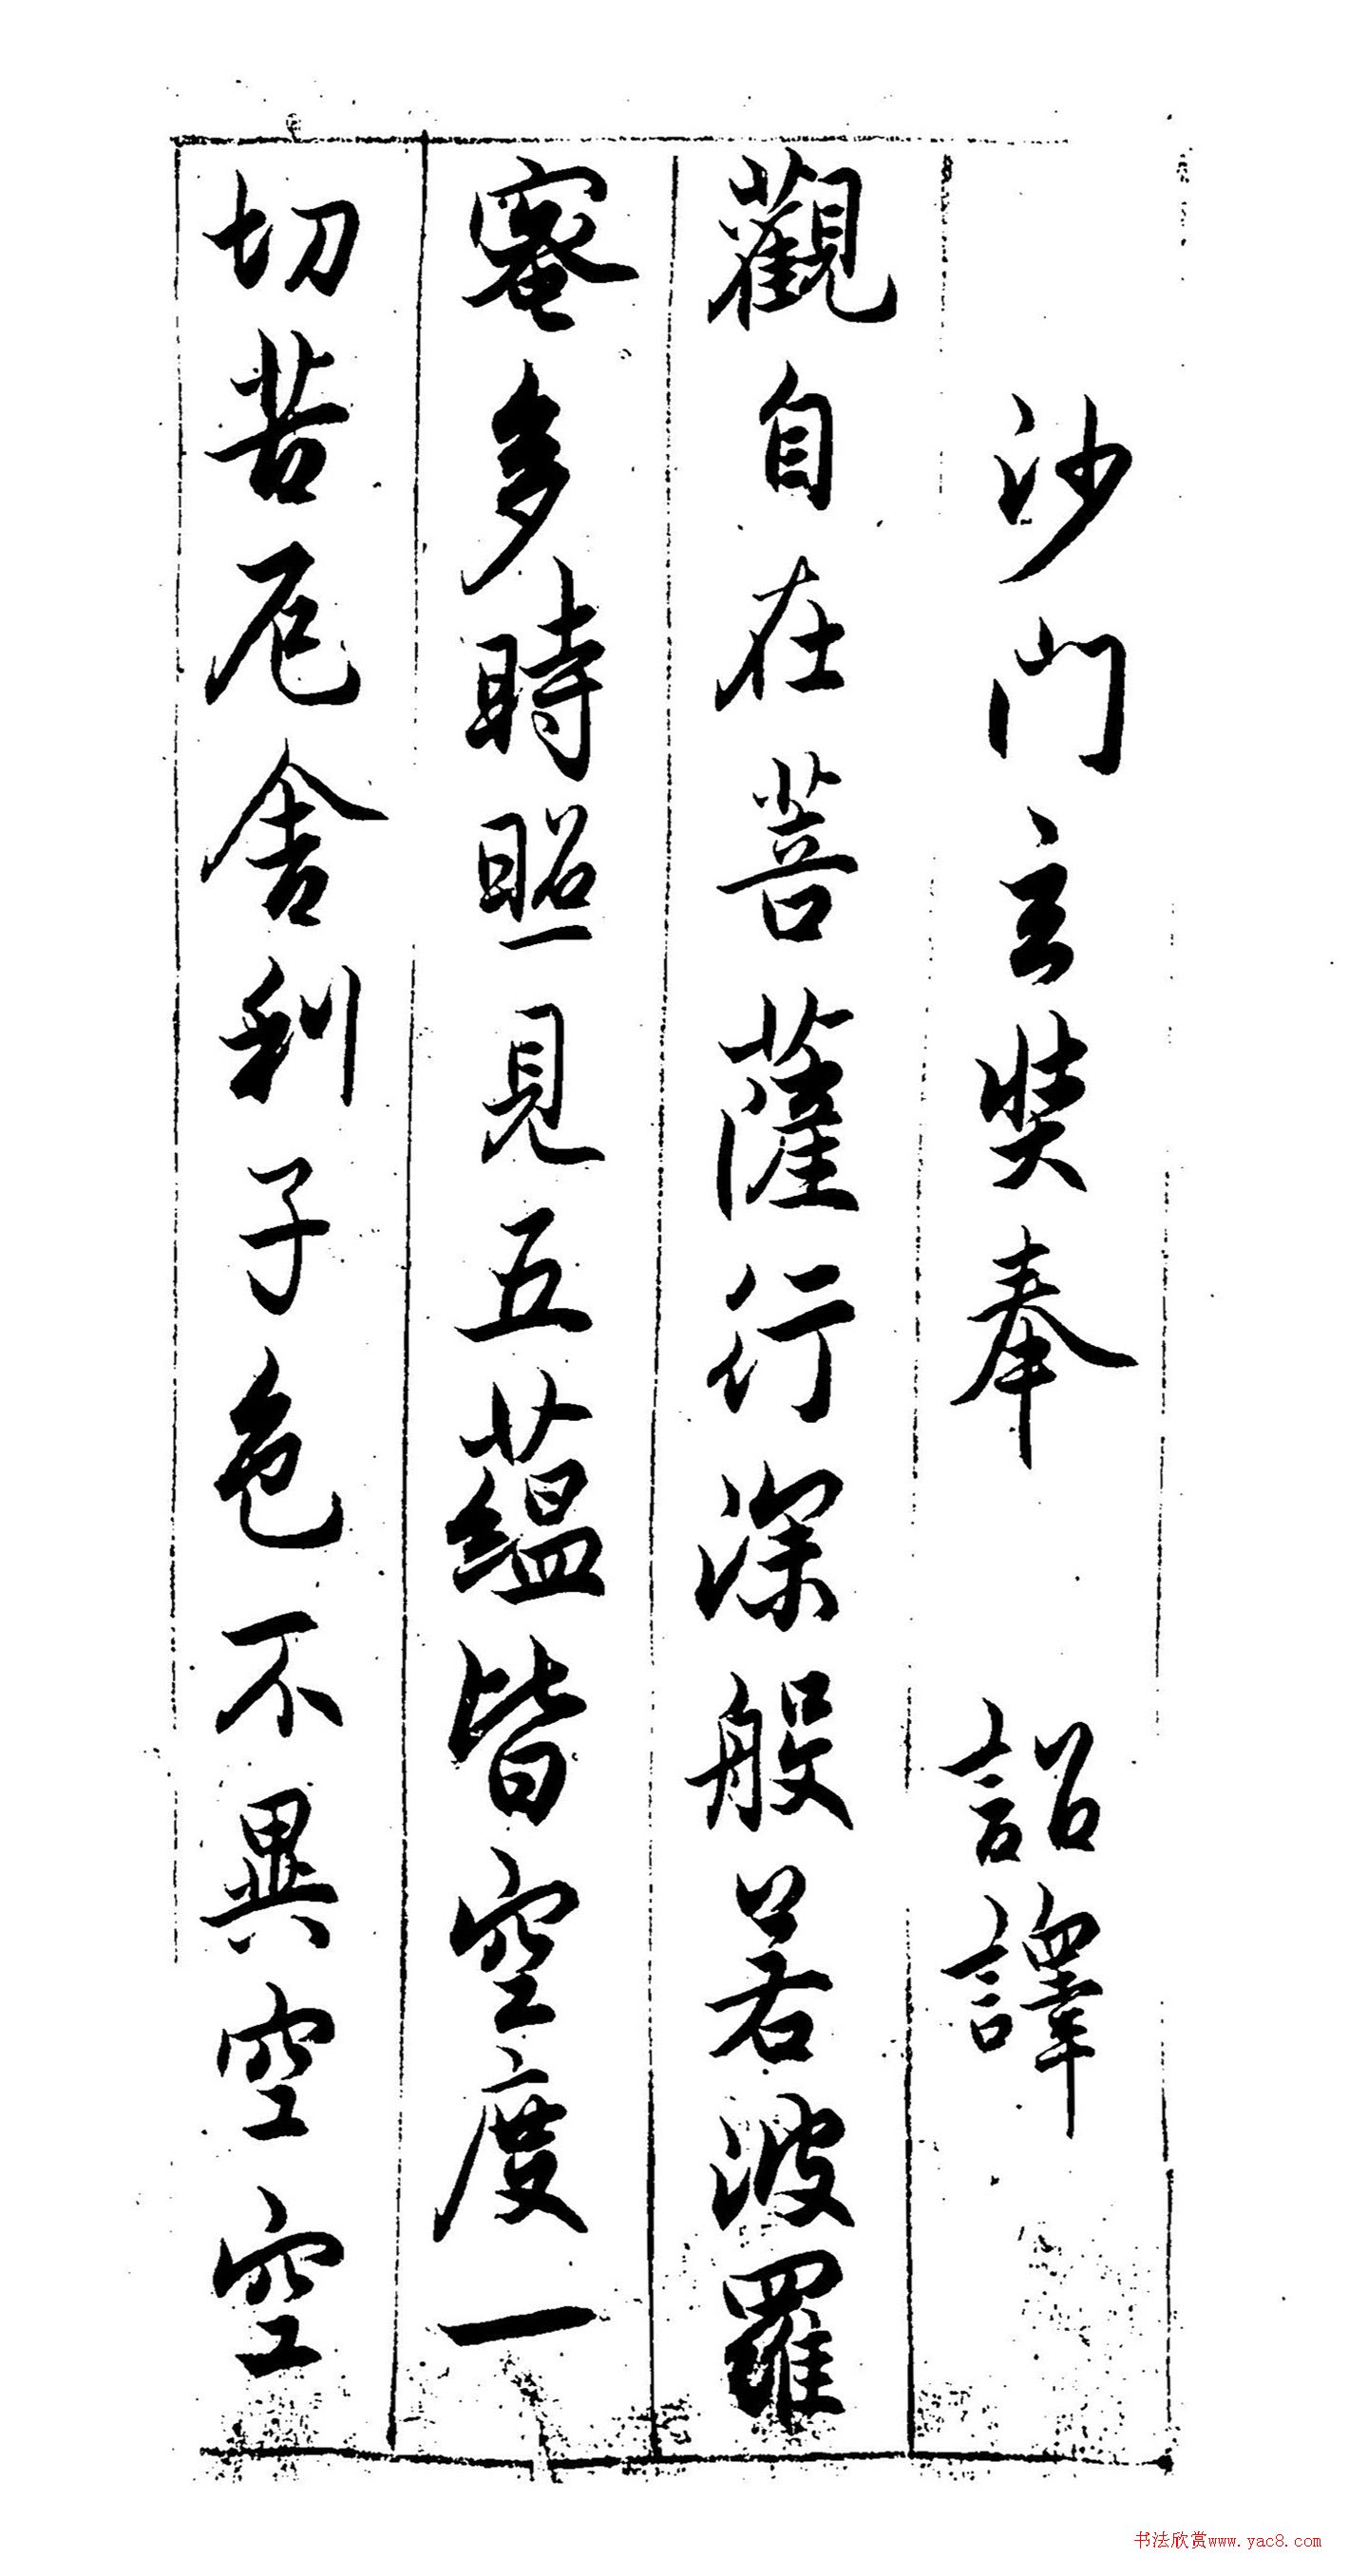 沙門玄奘奉 詔譯
觀自在菩薩行深般若波羅
蜜多時照見五蘊皆空度一
切苦厄舍利子色不異空空
书法欣赏www.yac8.com